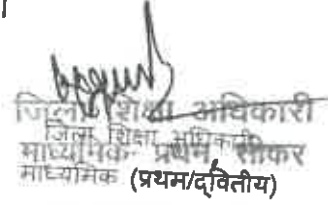 जिला शिक्षा अधिकारी
जिला शिक्षा अधिकारी
माध्यमिक प्रथम, सीकर
माध्यमिक (प्रथम/द्वितीय)